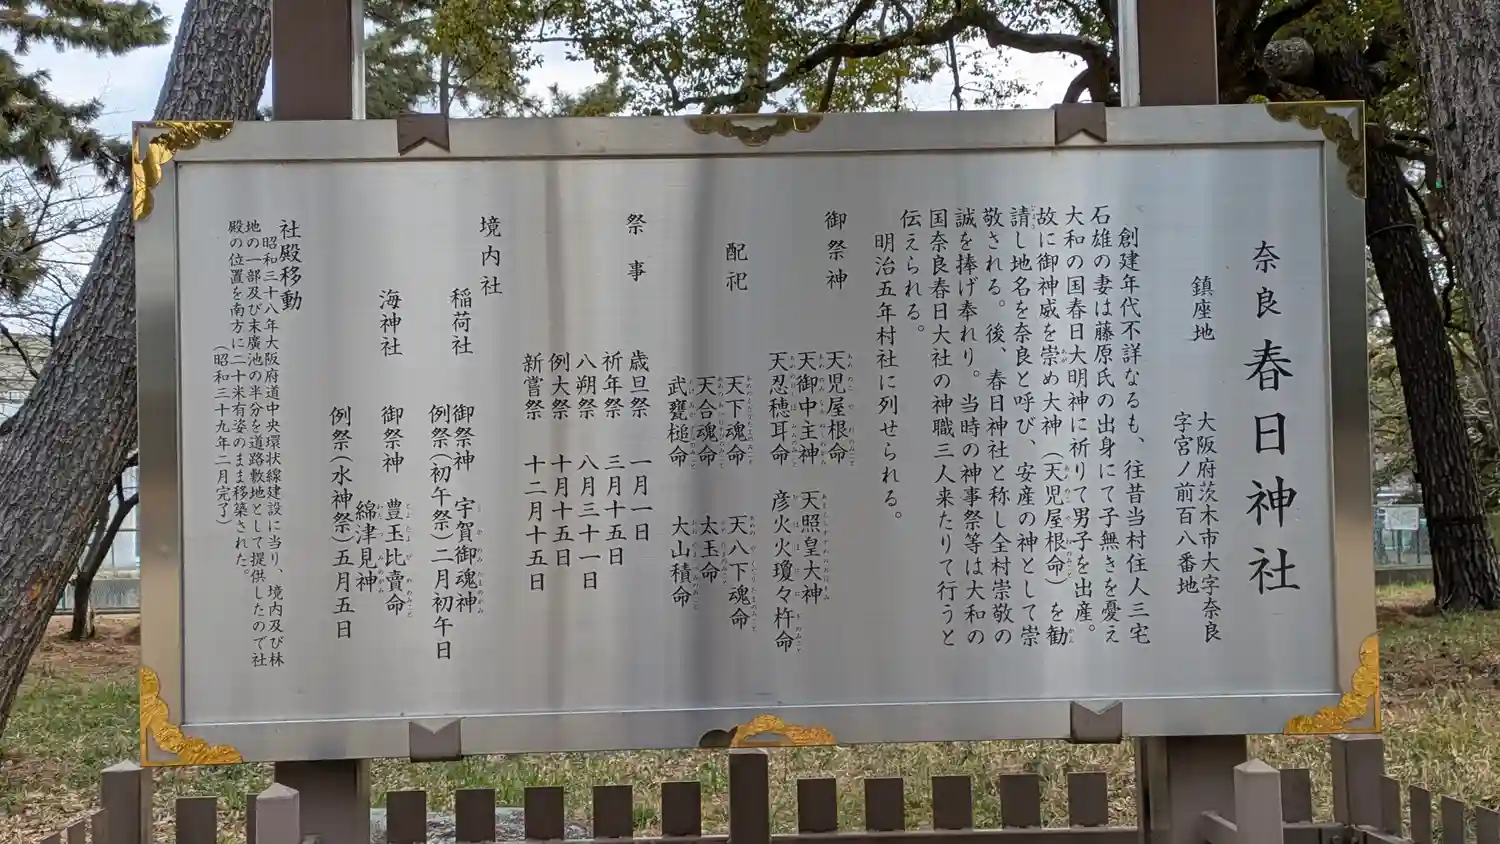 奈良春日神社
鎮座地
大阪府茨木市大字奈良
字宮ノ前百八番地
創建年代不詳なるも、往昔当村住人三宅
石雄の妻は藤原氏の出身にて子無きを憂え
大和の国春日大明神に祈りて男子を出産。
故に御神威を崇め大神（天児屋根命）を勧
請し地名を奈良と呼び、安産の神として崇
敬される。後、春日神社と称し全村崇敬の
誠を捧げ奉れり。当時の神事祭等は大和の
国奈良春日大社の神職三人来たりて行うと
伝えられる。
明治五年村社に列せられる。
御祭神
天児屋根命
天御中主神　天照皇大神
天忍穂耳命　彦火火瓊々杵命
配祀
天下魂命　天八下魂命
天合魂命　太玉命
武甕槌命　大山積命
祭事
歳旦祭　一月一日
祈年祭　三月十五日
八朔祭　八月三十一日
例大祭　十月十五日
新嘗祭　十二月十五日
境内社
稲荷社
御祭神　宇賀御魂神
例祭（初午祭）二月初午日
海神社
御祭神　豊玉比賣命
綿津見神
例祭（水神祭）五月五日
社殿移動
昭和三十八年大阪府道中央環状線建設に当り、境内及び林
地の一部及び末廣池の半分を道路敷地として提供したので社
殿の位置を南方に二十米有姿のまま移築された。
（昭和三十九年二月完了）